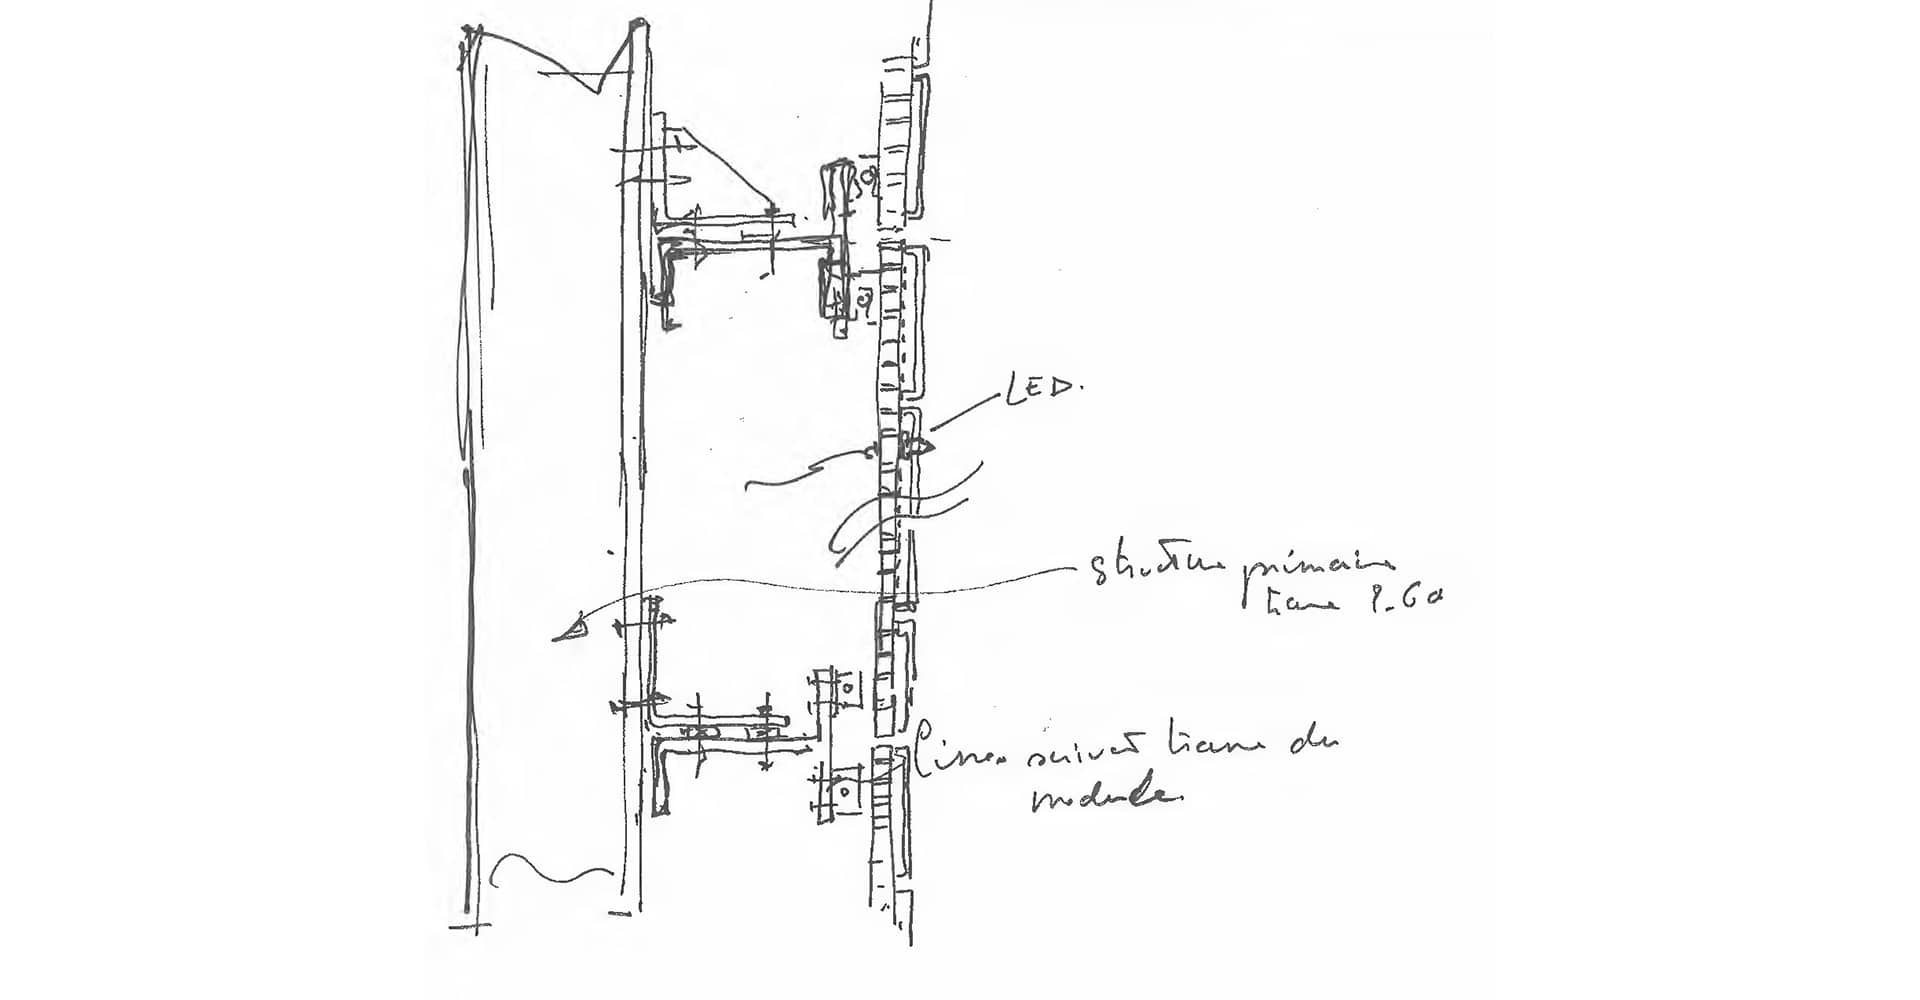 LED.
structure primaire
trame
lisses suivant trame du
module